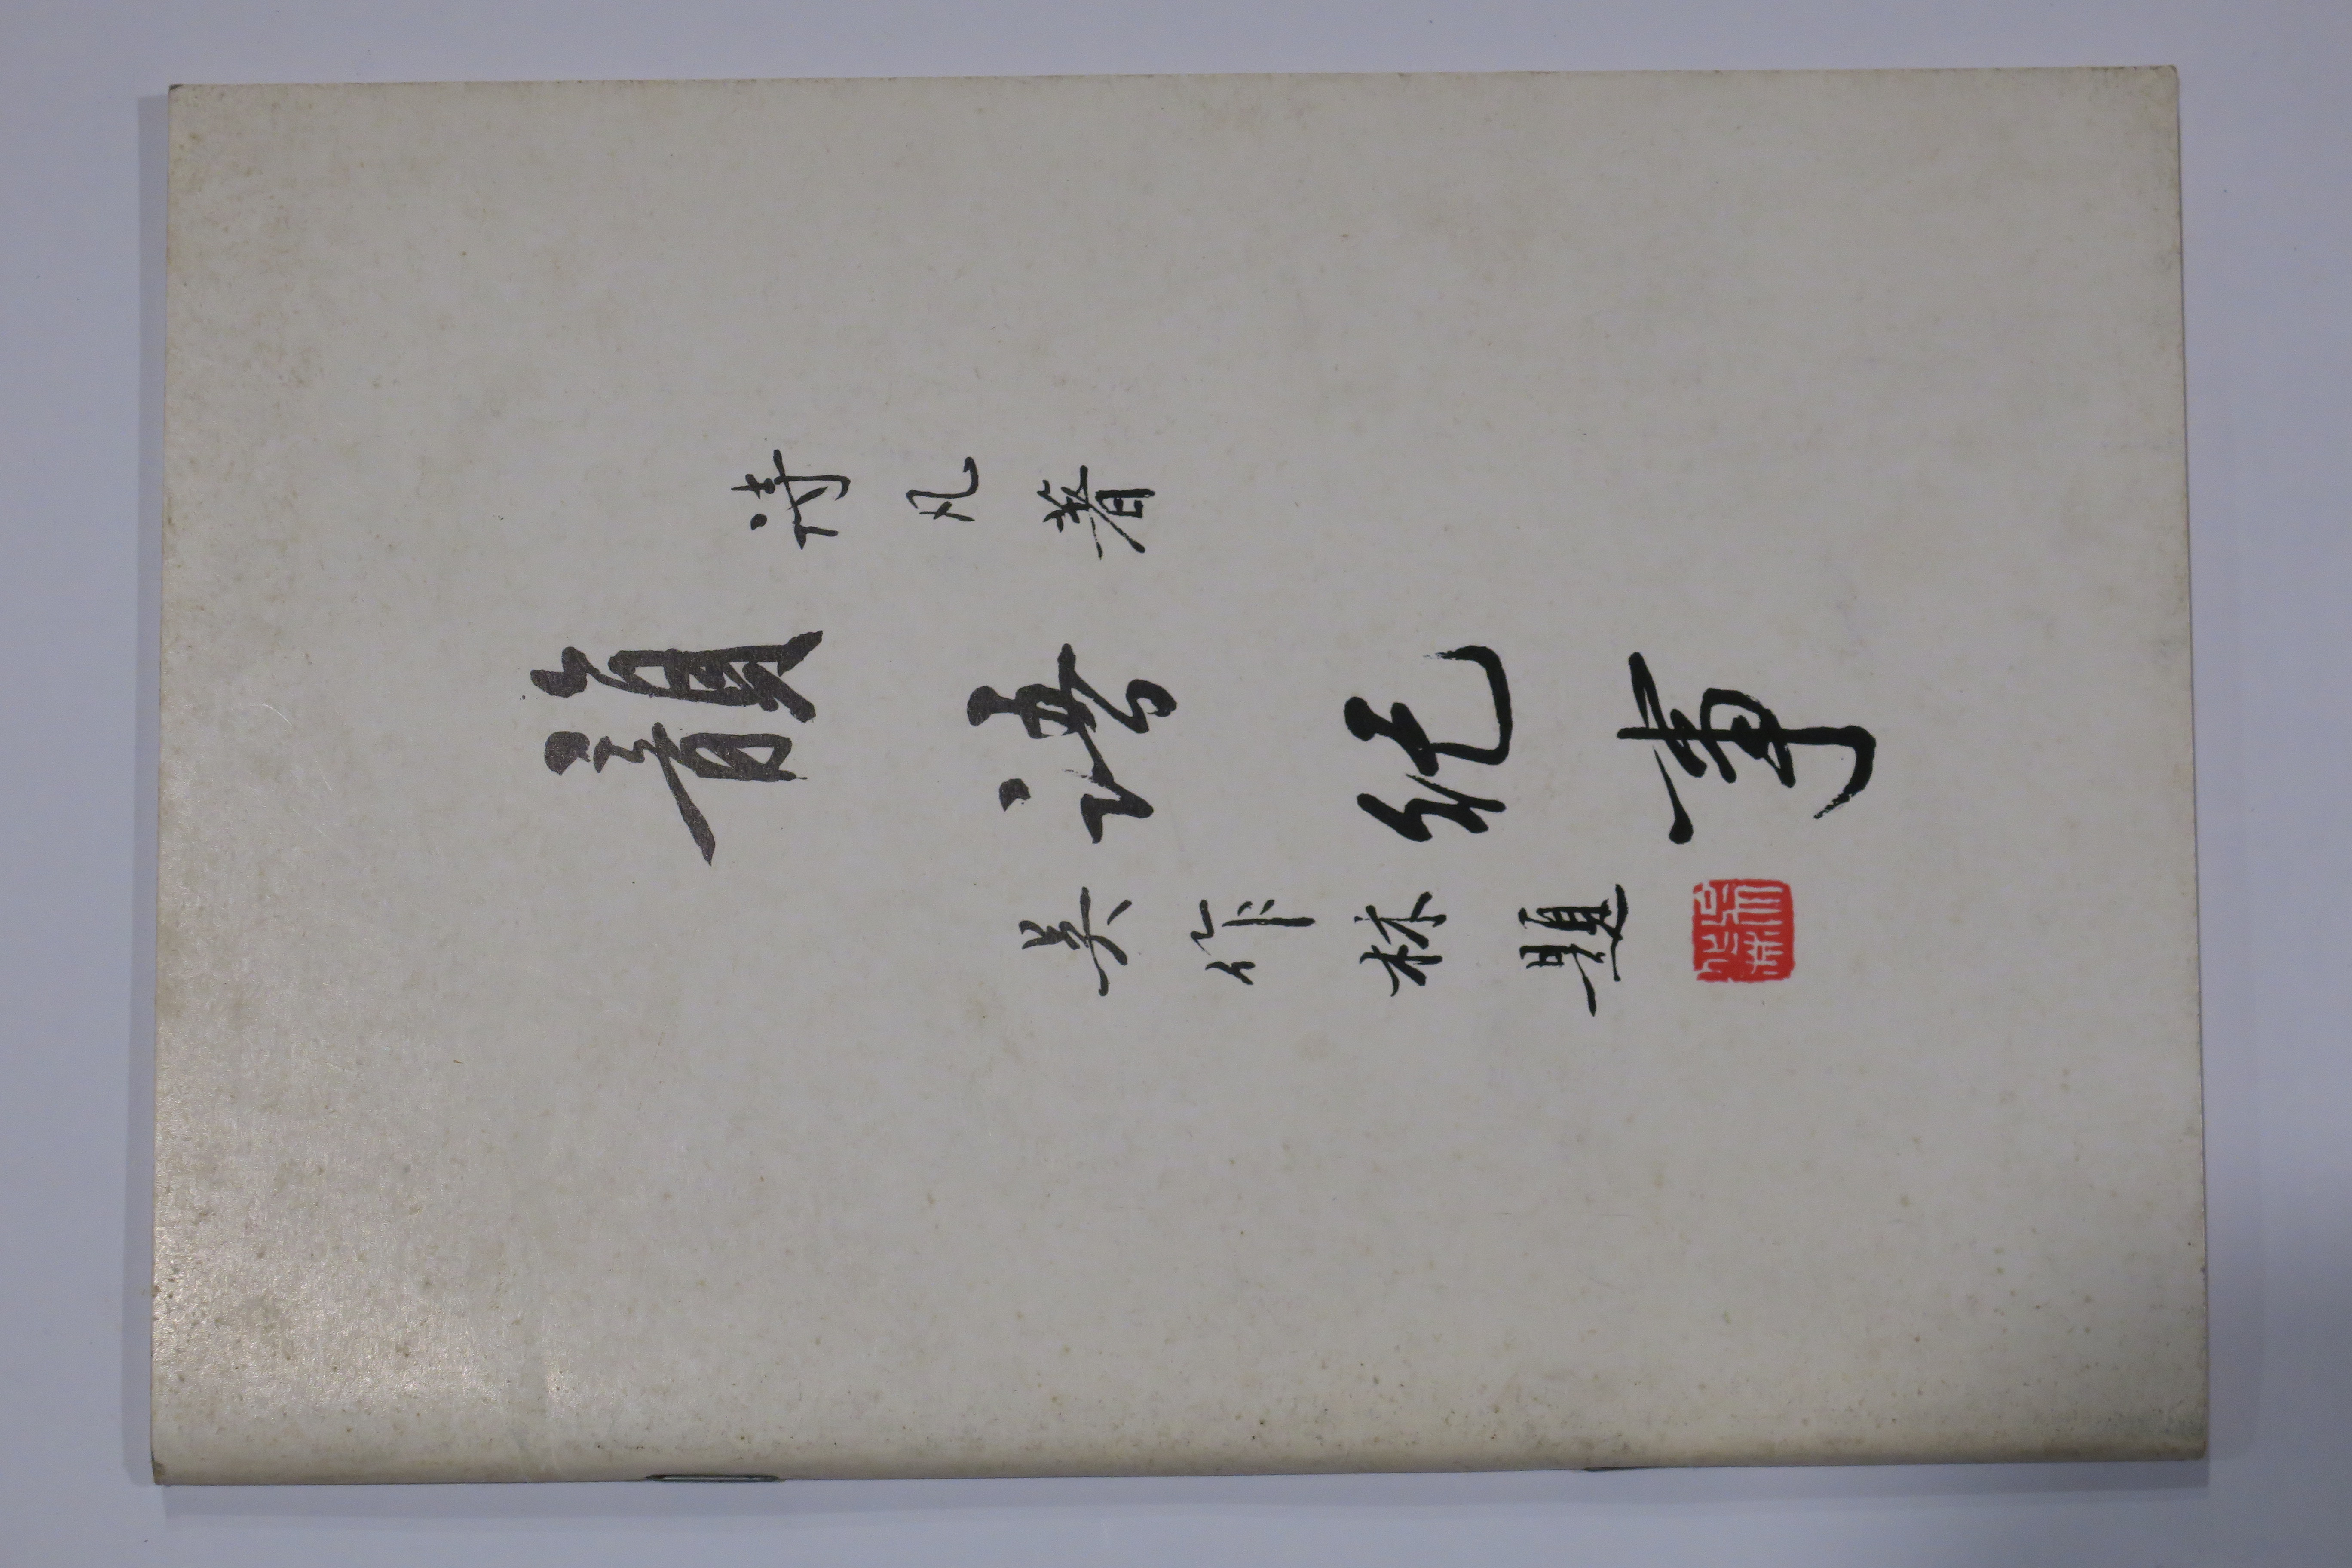 詩凡著
韻語紀事
吴作林題